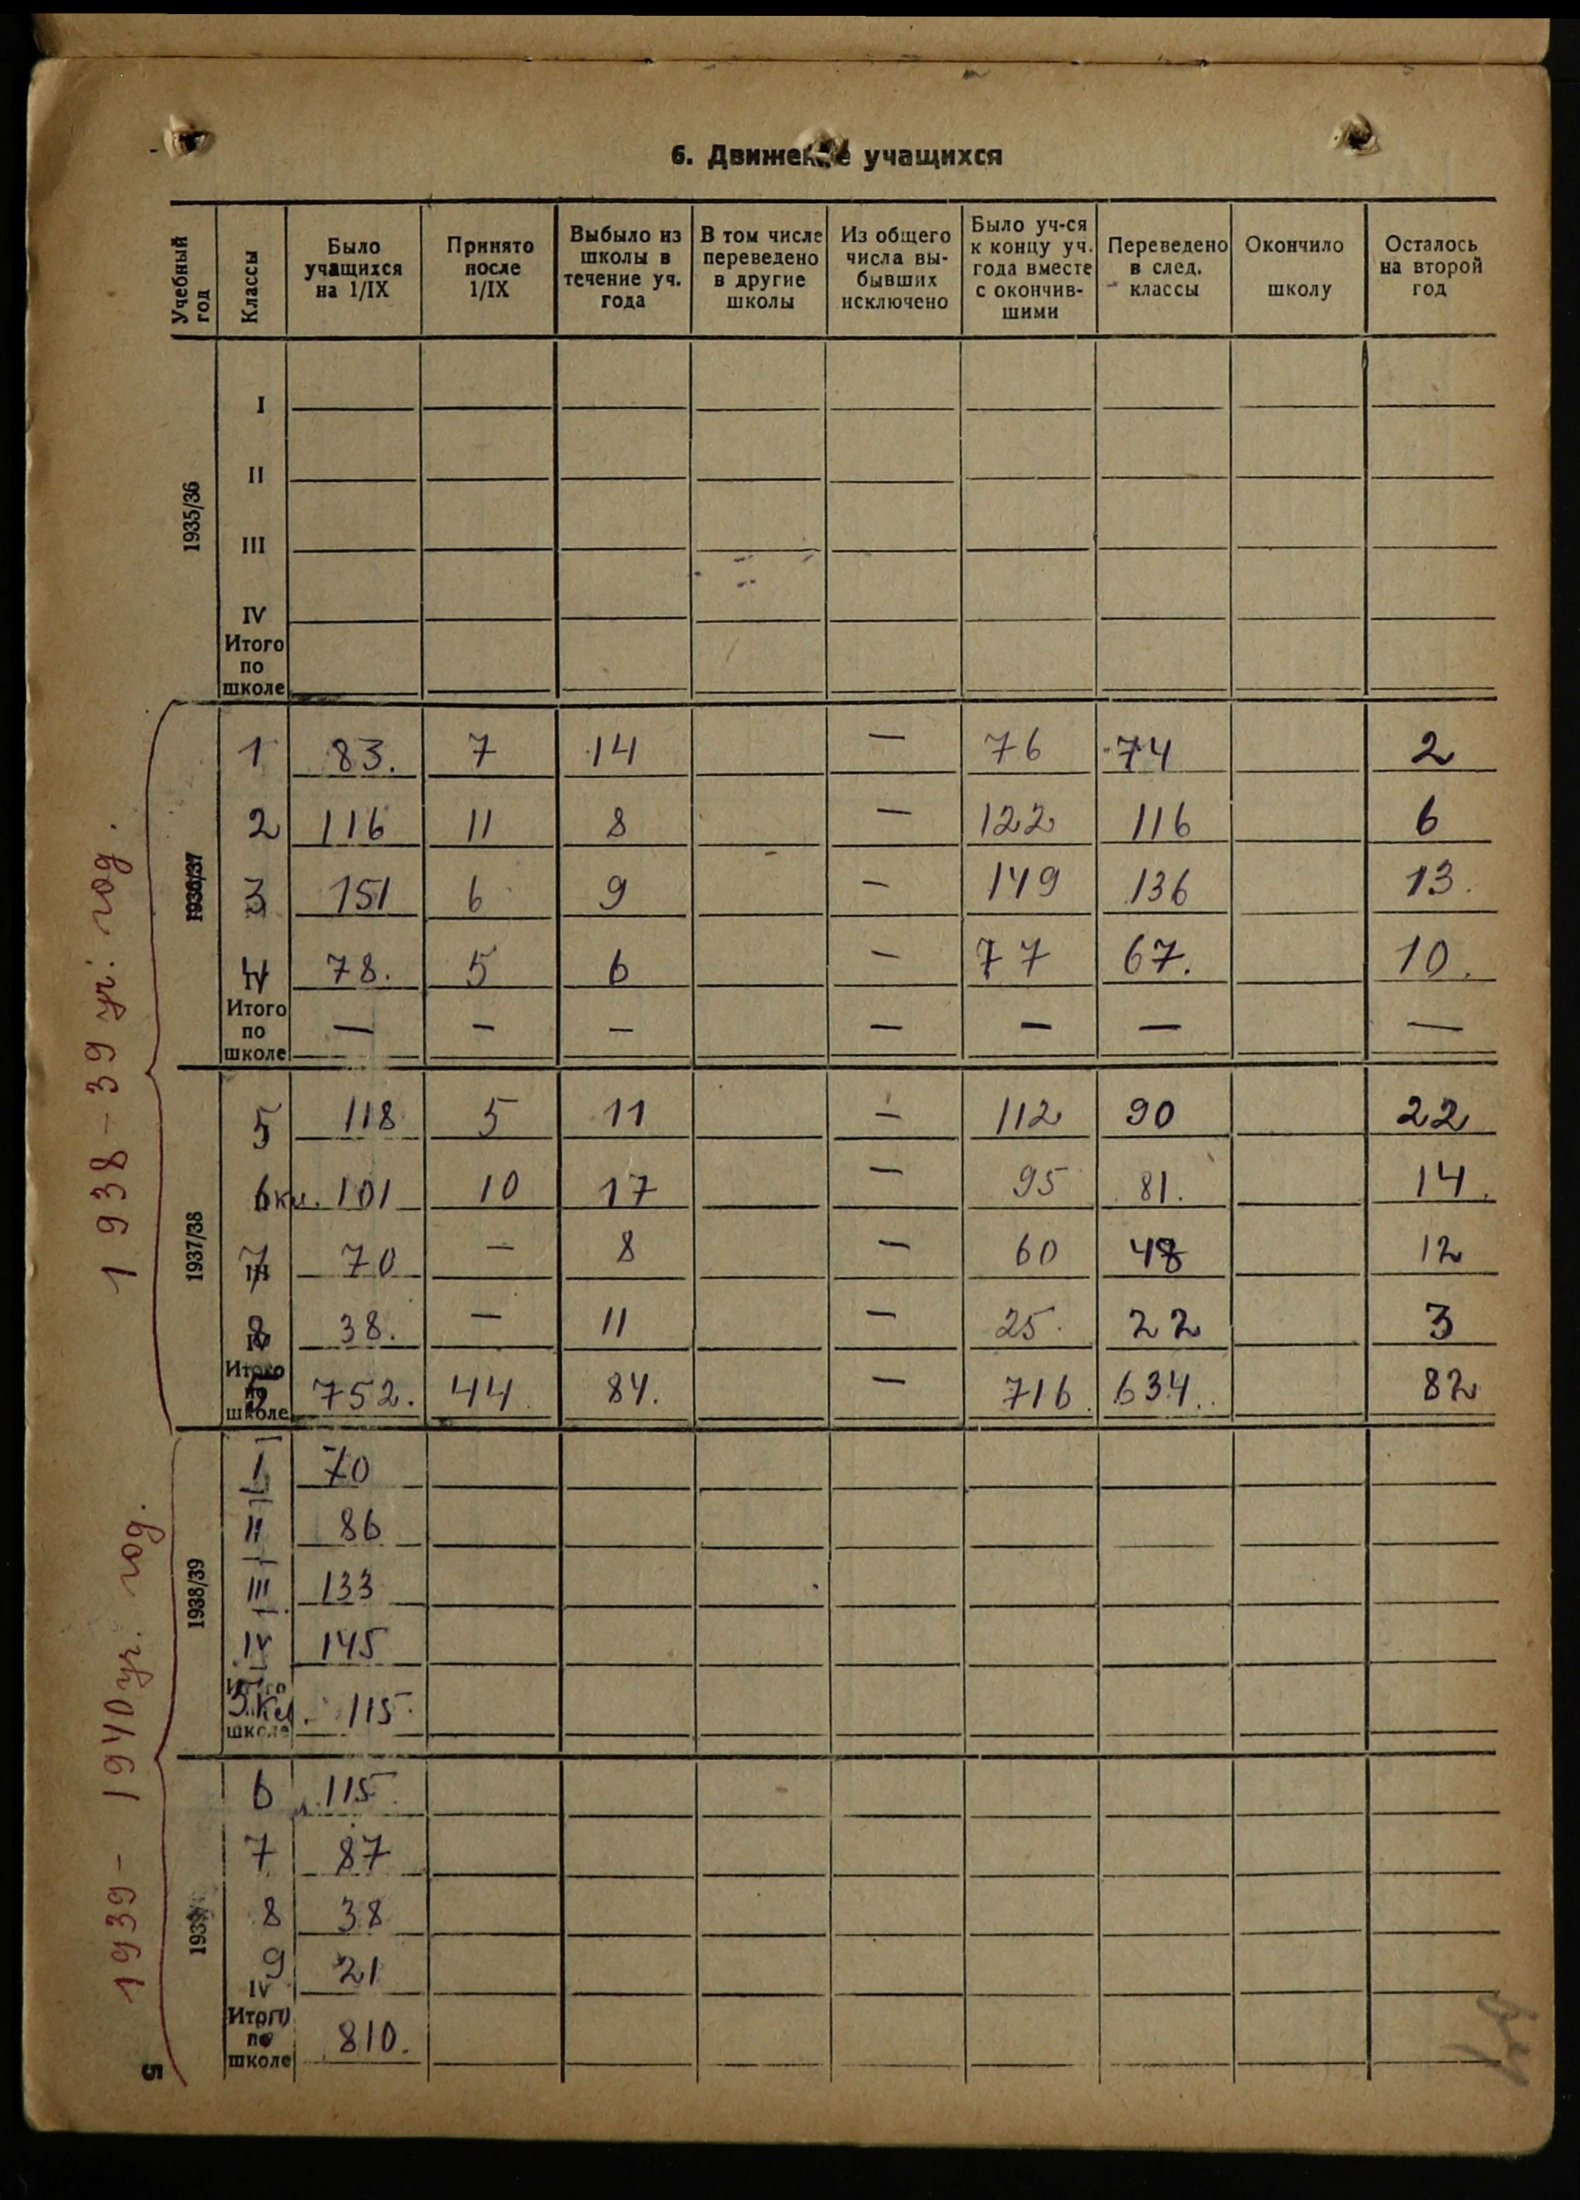 6. Движение учащихся
Учебный год | Классы | Было учащихся на 1/IX | Принято после 1/IX | Выбыло из школы в течение уч. года | В том числе переведено в другие школы | Из общего числа выбывших исключено | Было уч-ся к концу уч. года вместе с окончившими | Переведено в след. классы | Окончило школу | Осталось на второй год
1935/36
I
II
III
IV
Итого по школе
1938-39 уч. год.
1936/37
1 83. 7 14 — 76 74 2
2 116 11 8 — 122 116 6
3 151 6 9 — 149 136 13.
IV 78. 5 6 — 77 67. 10.
Итого по школе — — — — — — —
1937/38
5 118 5 11 — 112 90 22
6 кл. 101 10 17 — 95 81. 14.
7 70 — 8 — 60 48 12
8 38. — 11 — 25. 22 3
Итого по школе 752. 44 84. — 716. 634. 82
1939-1940 уч. год.
1938/39
I 70
II 86
III 133
IV 145
Итого по школе
5 кл. 115.
1939
6 115.
7 87
8 38
9 IV 21
Итого по школе 810.
5